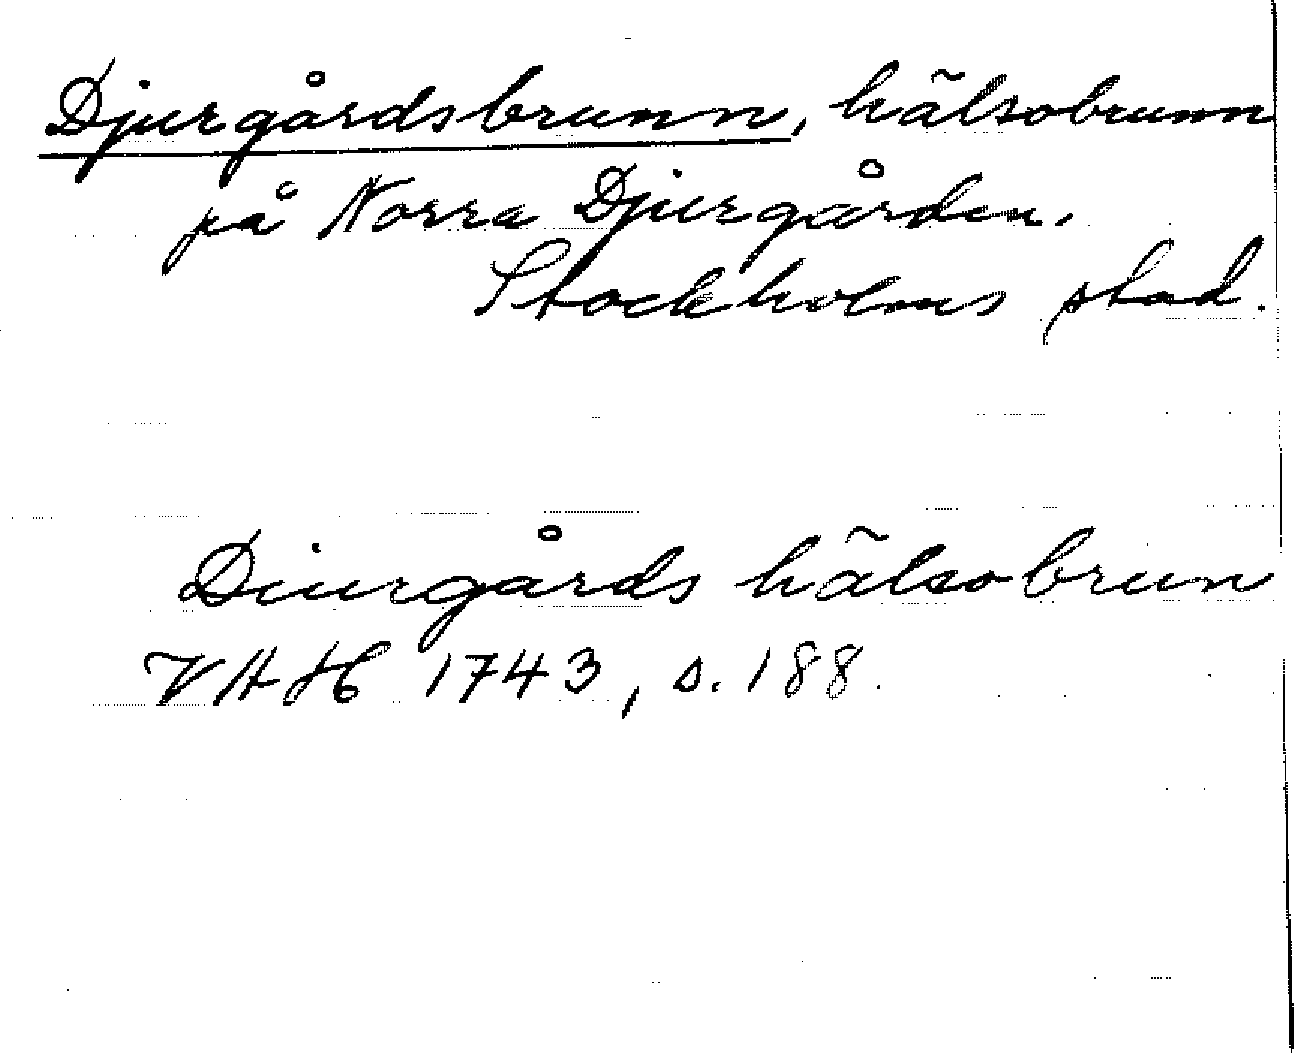 Djurgårdsbrunn, hälsobrunn
på Norra Djurgården.
Stockholms stad.
Diurgårds hälsobrun
VAH 1743, s. 188.